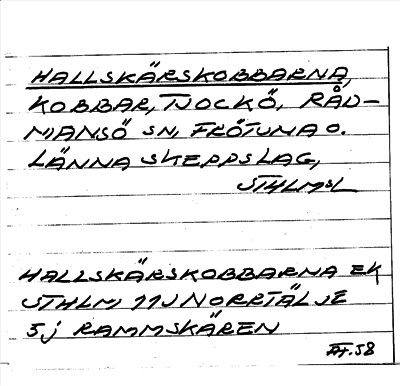 HALLSKÄRSKOBBARNA,
KOBBAR, TJOCKÖ, RÅD-
MANSÖ SN, FRÖTUNA O.
LÄNNA SKEPPSLAG,
STHLMSL
HALLSKÄRSKOBBARNA EK
STHLM 11J NORRTÄLJE
5j RAMMSKÄREN